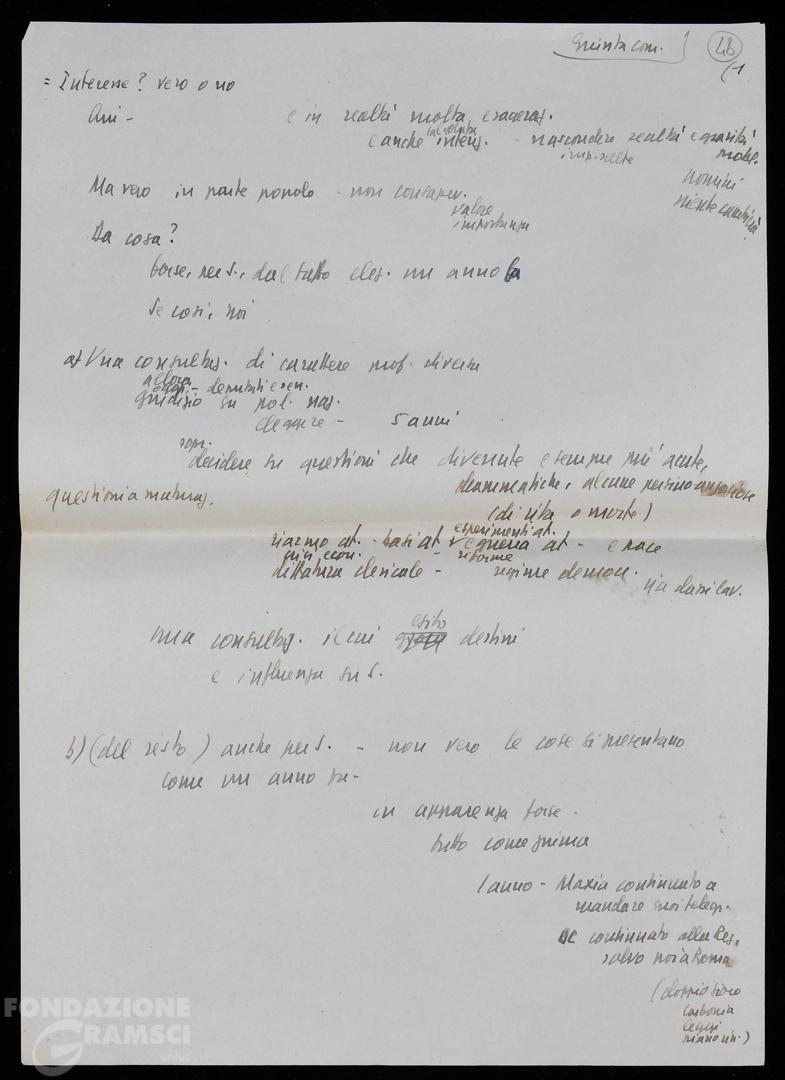 48
(1
= Interesse? vero o no
e in realtà molta esageraz.
e anche interess. - nascondere realtà e gravità
probl.
uomini
niente cambia
Ma vero in parte popolo - non consapev.
valore
importanza
Da cosa?
forse, per S., dal fatto elez. un anno fa
Se così, noi
a) Una consultaz. di carattere prof. diverso
allora
oggi - deputati e sen.
giudizio su pol. naz.
eleggere - 5 anni
decidere su questioni che divenute e sempre più acute,
drammatiche, alcune persino angosciose
questioni a maturaz.
(di vita o morte)
esperimenti at.
riarmo at. - basi at. e guerra at - e pace
riforme
dittatura clericale - regime democr.
una consultaz. il cui esito destini
e influenza su S.
b) (del resto) anche per S. - non vero le cose si presentano
come un anno fa -
in apparenza forse -
tutto come prima
1 anno - Maxia continuato a
mandare suoi telegr.
DC continuato alla Reg.
salvo poi a Roma
(doppio gioco
Carbonia
leggi
piano rin.)
FONDAZIONE
GRAMSCI
onlus